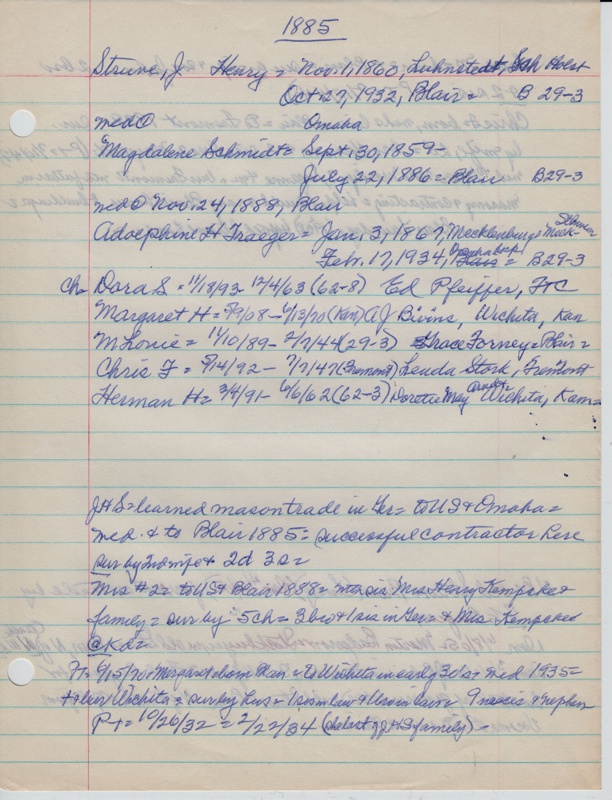 1885
Struve, J. Henry = Nov. 1, 1860, Luhnstedt, Sch Holst
Oct 27, 1932, Blair = B 29-3
med @ Omaha
Magdalene Schmidt = Sept. 30, 1859 -
July 22, 1886 = Blair B29-3
med @ Nov. 24, 1888, Blair
Adolphine H Traeger = Jan. 3, 1867, Mecklenburg = Meck-
Feb. 17, 1934, Omaha hosp = B29-3
Ch = Dora S = 11/18/93 - 12/4/63 (62-8) Ed Pfeiffer, FtC
Margaret H = 5/9/08 - 6/13/70 (Kan) A J Bivins, Wichita, Kan
M Lonie = 11/10/89 - 2/7/44 (29-3) Grace Forney = Blair =
Chris F = 5/14/92 - 7/7/47 (Fremont) Leuda Stork, Fremont
Herman H = 3/4/91 - 6/6/62 (62-3) Dorothe May Wichita, Kan =
JHS = learned mason trade in Ger = to US & Omaha =
med. & to Blair 1885 = successful contractor here
sur by 2nd wife & 2d 3s =
Mrs #2 = to US & Blair 1888 = sis Mrs Henry Kempcke &
family = sur by 5ch = 3bro & 1 sis in Ger = & Mrs. Kempcke
@ Kd =
6/15/70 = Margaret born Blair = to Wichita in early 30's = med 1935 =
Wichita = sur by hus = 1 sis in law & 9 nieces & nephews
P T = 10/26/32 = 2/22/34 (the last of JHS family) -